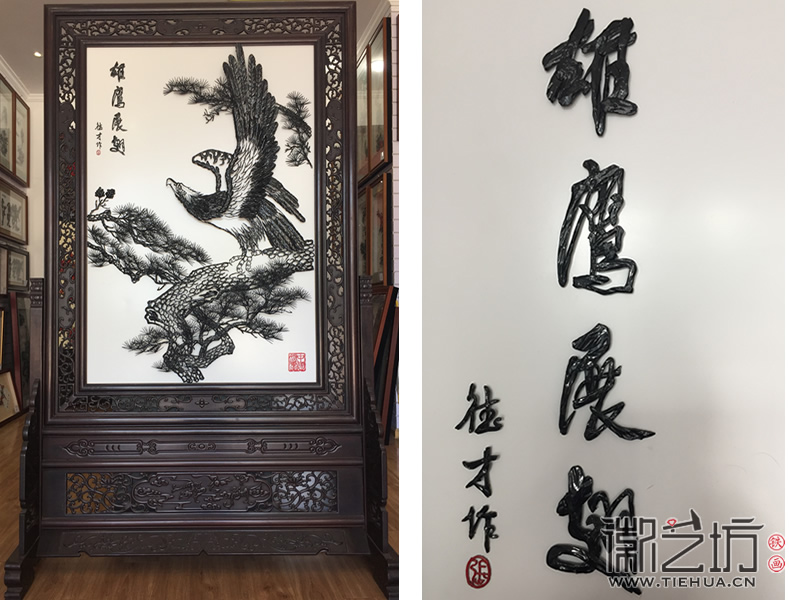 雄鹰展翅
德才作
雄鹰展翅
德才作
徽艺坊
铁画
WWW.TIEHUA.CN